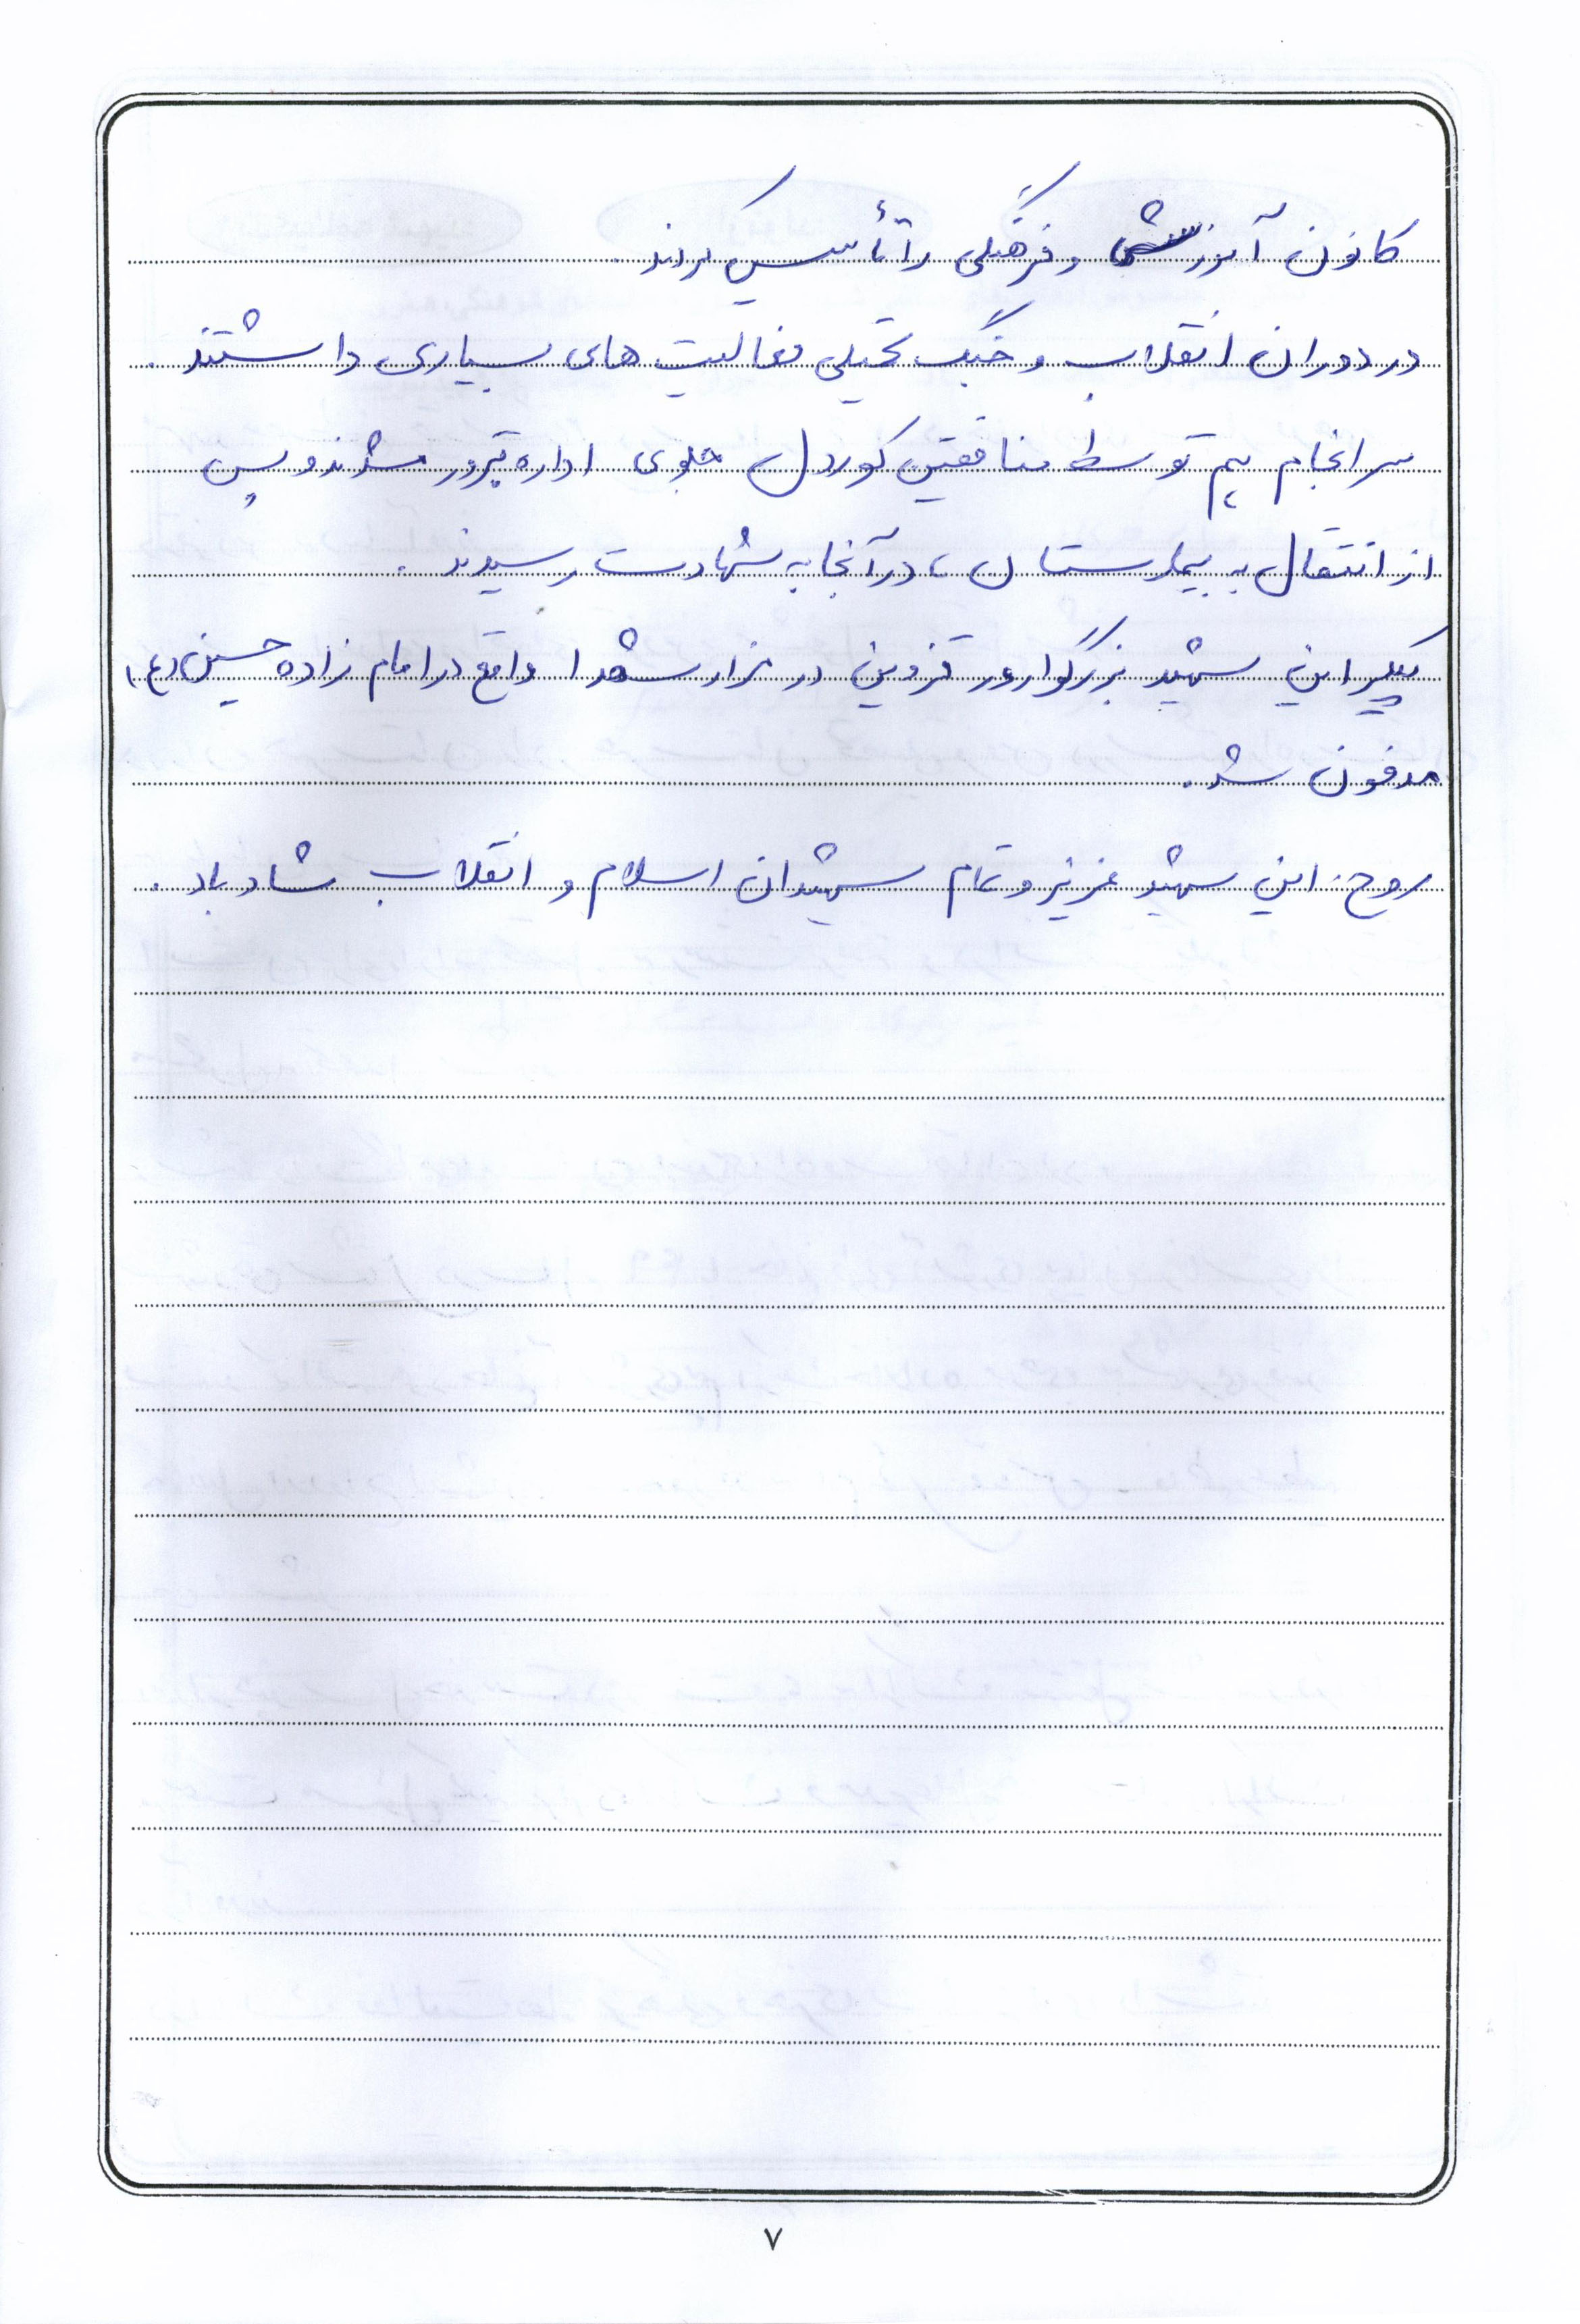 کانون آموزشی و فرهنگی را تأسیس کردند.
در دوران انقلاب و جنگ تحمیلی فعالیت های بسیاری داشتند.
سرانجام هم توسط منافقین کوردل جلوی اداره ترور شدند و پس
از انتقال به بیمارستان، در آنجا به شهادت رسیدند.
پیکر این شهید بزرگوار در قزوین در مزار شهدا واقع در امام زاده حسین (ع)
مدفون شد.
روح این شهید عزیز و تمام شهیدان اسلام و انقلاب شاد باد.
۷